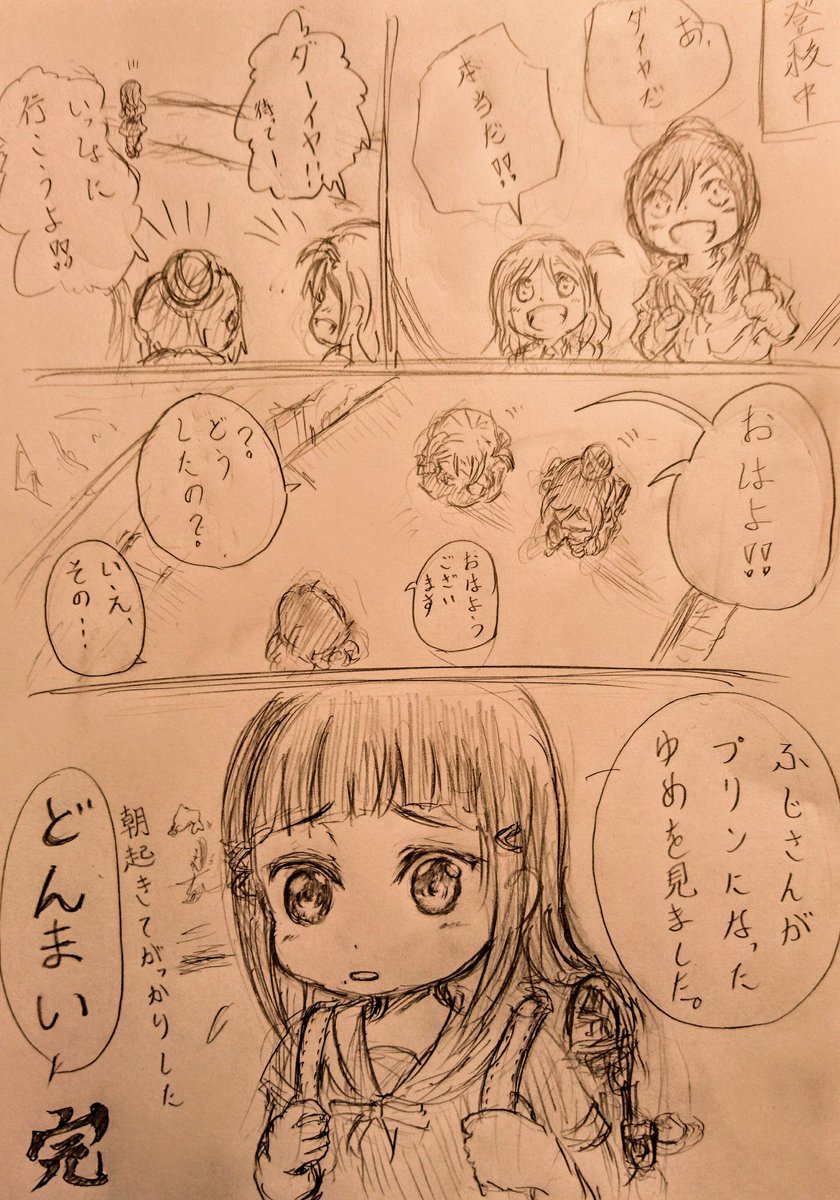 登校中
あ、
ダイヤだ
本当だ!!
ダーイヤ!!
待てー
いっしょに
行こうよ!!
おはよ!!
おはよう
ござい
ます
?。
どう
したの?
いえ、
その…
ふじさんが
プリンになった
ゆめを見ました。
朝起きてがっかりした
どんまい
完